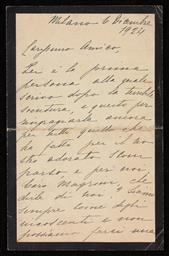 Milano 6 Dicembre
1924
Carissimo Amico,
Lei è la prima
persona alla quale
scrivo dopo la terribile
sventura, e questo per
ringraziarla ancora
per tutto quello che
ha fatto per il no-
stro adorato Scom-
parso, e per noi.
Caro Magrini che
dirle di noi?
sempre come degli
incoscienti e non
possiamo farci una